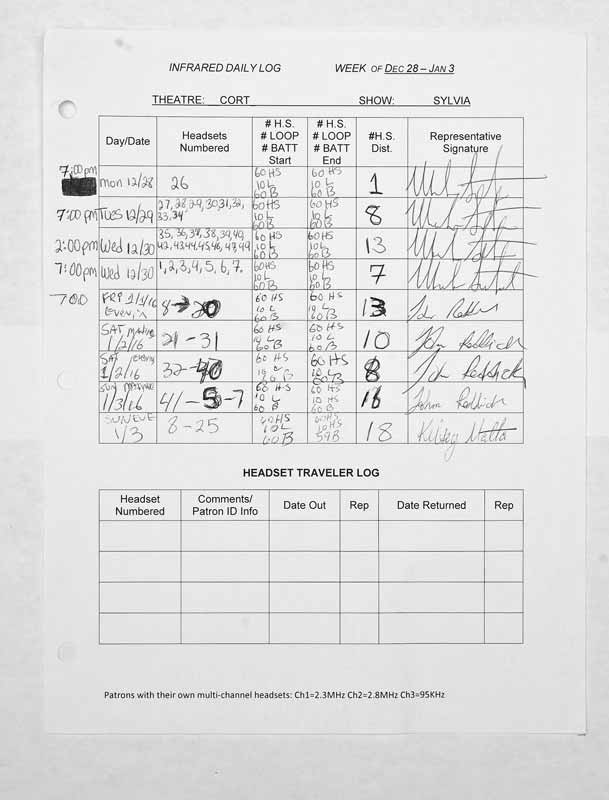 INFRARED DAILY LOG WEEK OF DEC 28 – JAN 3
THEATRE: CORT SHOW: SYLVIA
Day/Date
Headsets
Numbered
# H.S.
# LOOP
# BATT
Start
# H.S.
# LOOP
# BATT
End
#H.S.
Dist.
Representative
Signature
7:00pm
Mon 12/28
26
60 HS
10 L
60 B
60 HS
10 L
60 B
1
7:00 pm
Tues 12/29
27, 28, 29, 30, 31, 32,
33, 34
60 HS
10 L
60 B
60 HS
10 L
60 B
8
2:00 pm
Wed 12/30
35, 36, 37, 38, 39, 40,
42, 43, 44, 45, 46,
60 HS
10 L
60 B
60 HS
10 L
60 B
13
7:00 pm
Wed 12/30
1, 2, 3, 4, 5, 6, 7.
60 HS
10 L
60 B
60 HS
10 L
60 B
7
700
FRI 1/1/16
8→20
60 HS
10 L
60 B
60 HS
10 L
60 B
13
SAT
1/2/16
21 - 31
60 HS
10 L
60 B
60 HS
10 L
60 B
10
John Reddick
SAT
1/2/16
32 - 40
60 HS
60 B
60 HS
10 L
60 B
8
John Reddick
SUN
1/3/16
41 - 5 - 7
60 HS
10 L
60 B
60 HS
10 HS
60 B
16
John Reddick
SUN EVE
1/3
8 - 25
60 HS
10 L
60 B
60 HS
10 HS
59 B
18
HEADSET TRAVELER LOG
Headset
Numbered
Comments/
Patron ID Info
Date Out
Rep
Date Returned
Rep
Patrons with their own multi-channel headsets: Ch1=2.3MHz Ch2=2.8MHz Ch3=95KHz